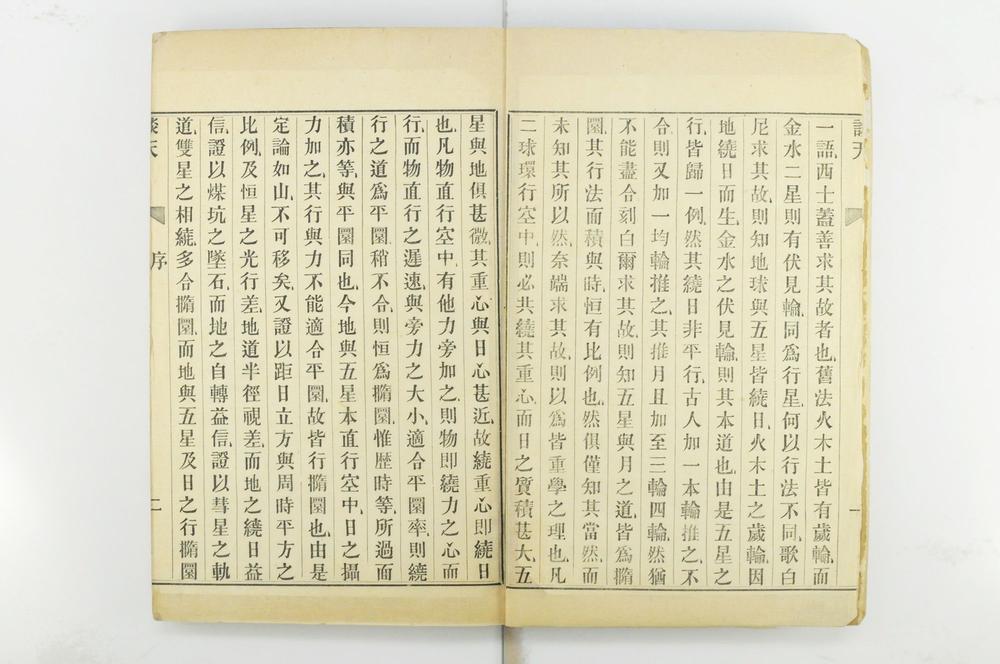 談天
一
一語西士蓋善求其故者也舊法火木土皆有歲輪而
金水二星則有伏見輪同為行星何以行法不同歌白
尼求其故則知地球與五星皆繞日火木土之歲輪因
地繞日而生金水之伏見輪則其本道也由是五星之
行皆歸一例然其繞日非平行古人加一本輪推之不
合則又加一均輪推之其推月且加至三輪四輪然猶
不能盡合刻白爾求其故則知五星與月之道皆為撱
圜其行法面積與時恒有比例也然俱僅知其當然而
未知其所以然奈端求其故則以為皆重學之理也凡
二球環行空中則必共繞其重心而日之質積甚大五
星與地俱甚微其重心與日心甚近故繞重心即繞日
也凡物直行空中有他力旁加之則物即繞力之心而
行而物直行之遲速與旁力之大小適合平圜率則繞
行之道為平圜稍不合則恒為撱圜惟歷時等所過面
積亦等與平圜同也今地與五星本直行空中日之攝
力加之其行與力不能適合平圜故皆行撱圜也由是
定論如山不可移矣又證以距日立方與周時平方之
比例及恒星之光行差地道半徑視差而地之繞日益
信證以煤坑之墜石而地之自轉益信證以彗星之軌
道雙星之相繞多合撱圜而地與五星及日之行撱圜
談天
序
二